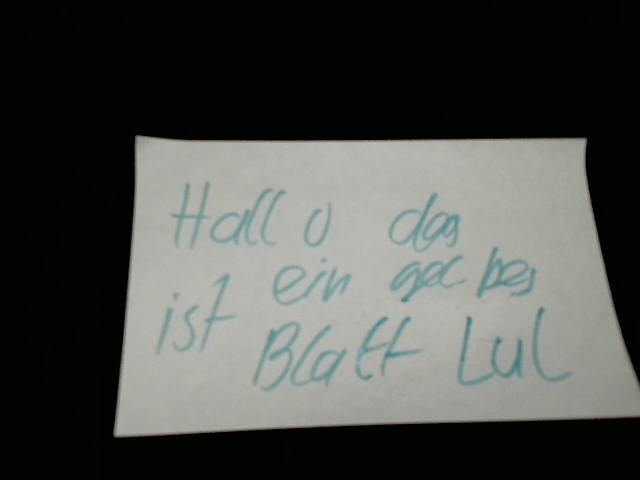 Hallu das
ist ein gelbes
Blatt Lul